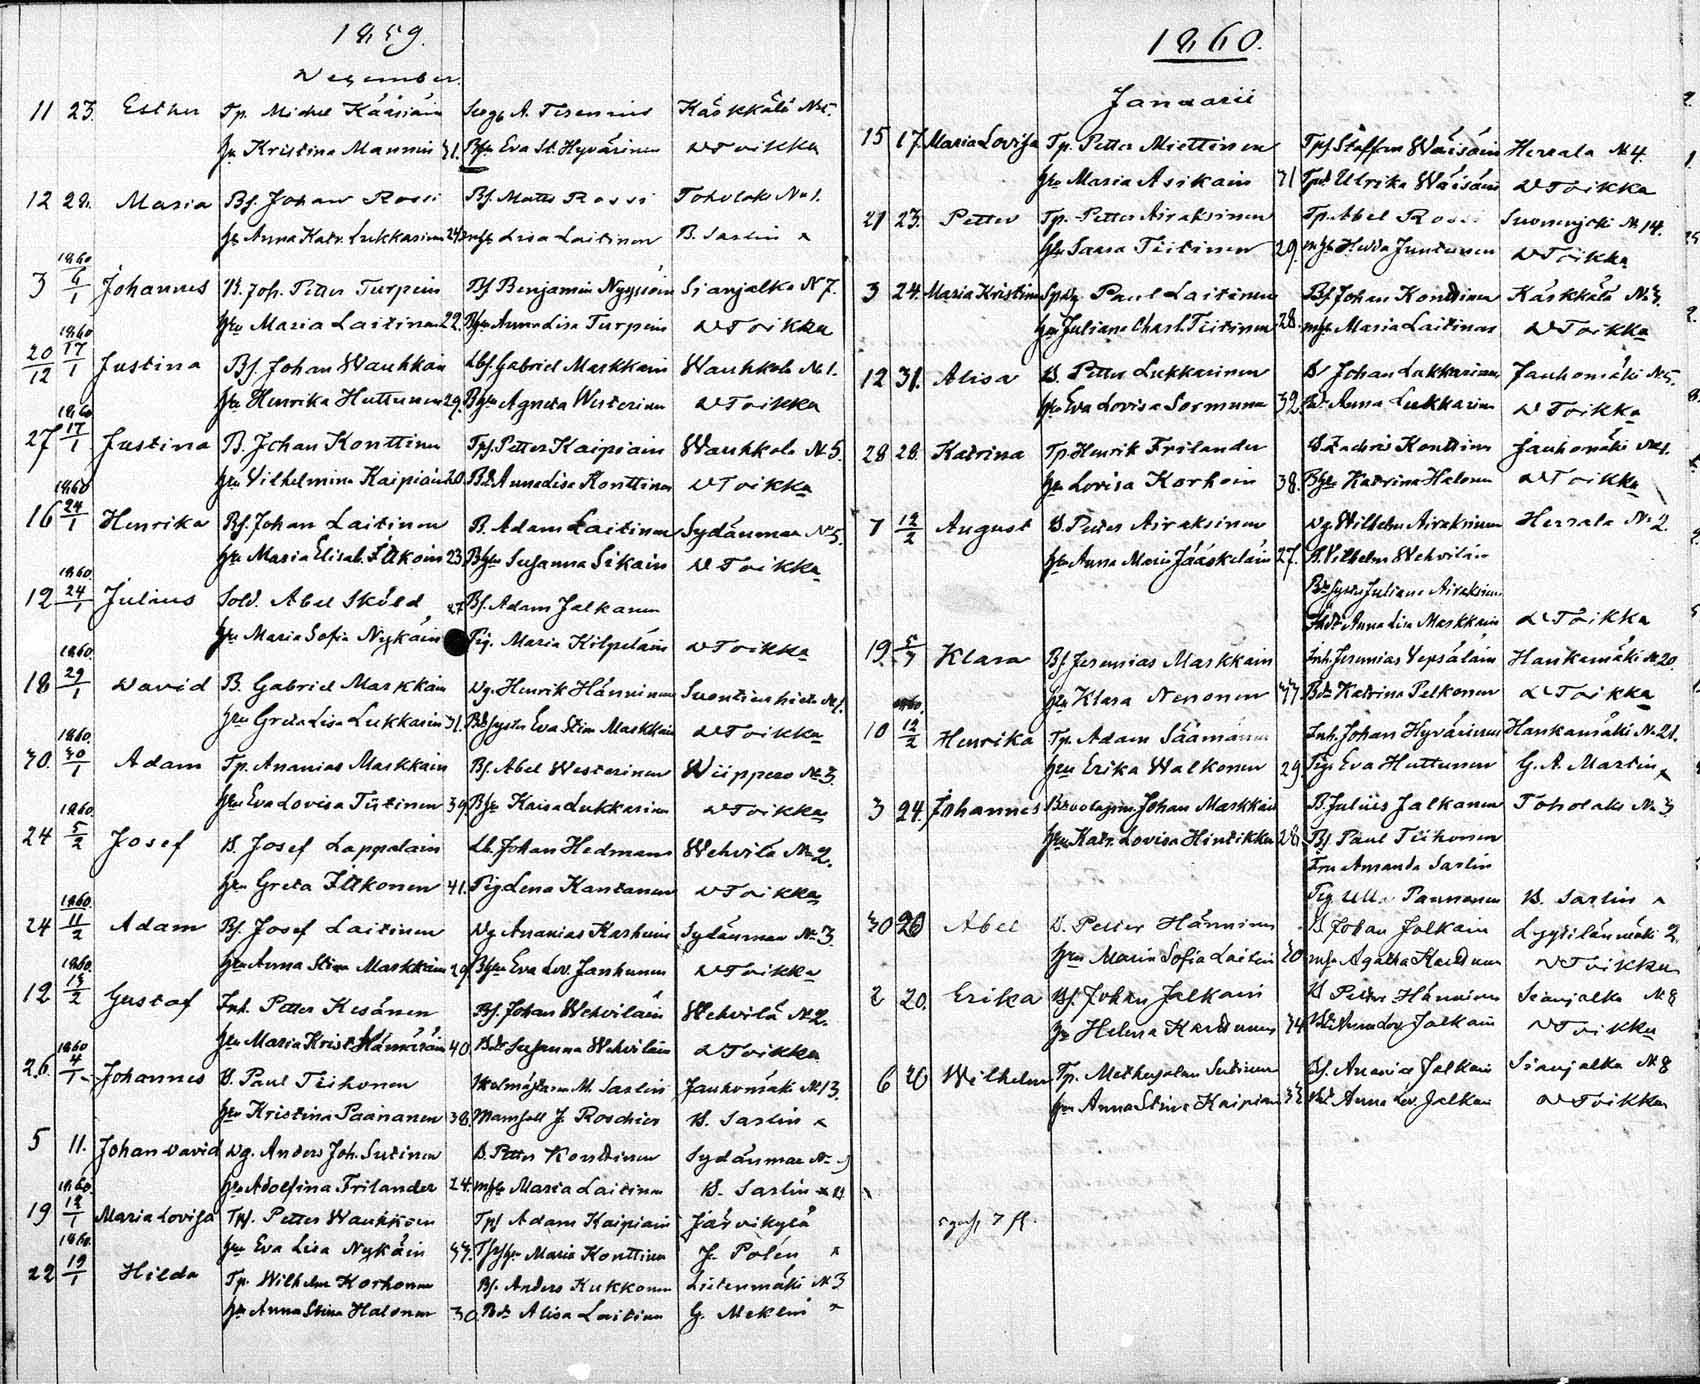 1859.
December.
11 23. Esther Tp. Michel Kääriäin A. Käskkälä №
Hu Kristina Mannin 31. Bfhu Eva St. Hyvärinen D Toikka
12 28. Maria Bf. Johan Rossi Bf. Matts Rossi Toholaks № 1.
Hu Anna Katr. Lukkarinen mfhu Lisa Laitinen B. Sarlin
1860
3 6/1 Johannes B. Joh. Petter Turpein Bf Benjamin Nyyssöin Sianjalka № 7.
Hu Maria Laitinen 22. Bfhu Anna Lisa Turpein D Toikka
1860
20/12 17/1 Justina Bf. Johan Wauhkoin Gabriel Markkain Wauhkola № 1.
Hu Henrika Huttunen 29. Bfhu Agneta Westerinen D Toikka
1860
27 17/1 Justina B. Johan Konttinen Tpf. Petter Kaipiain Wauhkola № 5.
Hu Vilhelmina Kaipiain 20. Bdr Anna Lisa Konttinen D Toikka
1860
16 24/1 Henrika Bf. Johan Laitinen B. Adam Laitinen Sydänmaa № 5.
Hu Maria Elisab. Itkoin 23. Bfhu Susanna Sikain D Toikka
1860
12 24/1 Julius Sold. Abel Sköld 27 Bf. Adam Jalkanen
Hu Maria Sofia Nykäin Pig. Maria Kilpeläin D Toikka
1860.
18 29/1 David B. Gabriel Markkain Dg. Henrik Hänninen № 1.
Hu Greta Lisa Lukkarin 31. Eva Stina Markkain D Toikka
1860.
30. 30/1 Adam Tp. Ananias Markkain Bf. Abel Westerinen Wiippero № 3.
Hu Eva Lovisa Tiitinen 39. Bfhu Kaisa Lukkarinen D Toikka
1860.
24 5/2 Josef B. Josef Lappalain Johan Hedman Wehvilä № 2.
Hu Greta Itkonen 41. Pig Lena Kantanen D Toikka
1860.
24 11/2 Adam Bf. Josef Laitinen Dg Ananias Karhuin Sydänmaa № 3.
Hu Anna Stina Markkain 29. Bfhu Eva Lov. Janhunen D Toikka
1860.
12 13/2 Gustaf Inh. Petter Kesänen Bf. Johan Wehviläin Wehvilä № 2.
Hu Maria Krist. 40. Bdr Susanna Wehviläin D Toikka
1860
26. 4/1 Johannes B. Paul Tiihonen M. Sarlin Jauhomäki № 13.
Hu Kristina Paananen 38. Mamsell J. Roschier B. Sarlin
5 11. Johan David Dg. Anders Joh. Sutinen B. Petter Konttinen Sydänmaa №
1860. Hu Adolfina Frilander 24. mfhu Maria Laitinen B. Sarlin
19 12/1 Maria Lovisa Tpf. Petter Waukkoin Tpf Adam Kaipiain Järvikylä
1860. Hu Eva Lisa Nykäin 37. Tpfhu Maria Konttinen J. Polén
22 19/1 Hilda Tp. Wilhelm Korhonen Bf. Anders Kukkonen Lietenmäki № 3
Hu Anna Stina Halonen 30. Bdr Alisa Laitinen G. Meklin
1860.
Januarii
15 17. Maria Lovisa Tp. Petter Miettinen Tpf Staffan Wäisäin Herrala № 4.
Hu Maria Asikain 31 Tpdr Ulrika Wäisäin D Toikka
21 23. Petter Tp. Petter Airaksinen Tp. Abel Rossi № 14.
Hu Saara Tiitinen 29. mfhu Hedda Juntunen D Toikka
3 24. Maria Kristina Paul Laitinen Bf Johan Konttinen Käskkälä №
Hu Juliana Charl. Tiitinen 28. mfhu Maria Laitinen D Toikka
12 31. Alisa B. Petter Lukkarinen B Johan Lukkarinen Jauhomäki № 5.
Hu Eva Lovisa Sormunen 32. Bdr Anna Lukkarin D Toikka
28 28. Katrina Tp Henrik Frilander B. Zachris Konttinen Jauhomäki №
Hu Lovisa Korhoin 38. Bfhu Katrina Halonen D Toikka
7 12/2 August B. Petter Airaksinen Dg. Wilhelm Airaksinen Herrala № 2.
Hu Anna Maria Jääskeläin 27. B. Vilhelm Wehviläin
Juliana Airaksinen
Anna Lisa Markkain D Toikka
19. 5/3 Klara Bf Jeremias Markkain Inh. Jeremias Vepsäläin Hankamäki № 20.
1860. Hu Klara Nenonen Bdr Katrina Pelkonen D Toikka
10 12/2 Henrika Tp. Adam Säämänen Inh. Johan Hyvärinen Hankamäki № 21.
Hu Erika Walkonen 29. Pig Eva Huttunen G. A. Martin
3 24. Johannes Johan Markkain B. Julius Jalkanen Toholaks № 3
Hu Katr. Lovisa Hintikka 28. Bf. Paul Tiihonen
Fru Amanda Sarlin
Pig Ulla Paunonen B. Sarlin
30 26 Abel B. Petter Hänninen B Johan Jalkain 2
Hu Maria Sofia Laitin 20 mfhu Agatha D Toikka
2 20. Erika Bf. Johan Jalkain B Petter Hänninen Sianjalka № 8
Hu Helena 34 Jalkain D Toikka
6 20 Wilhelm Tp. Methusalem Sutinen Bf. Ananias Jalkain Sianjalka № 8
Hu Anna Stina Kaipiain 33 Bdr Anna Lov. Jalkain D Toikka